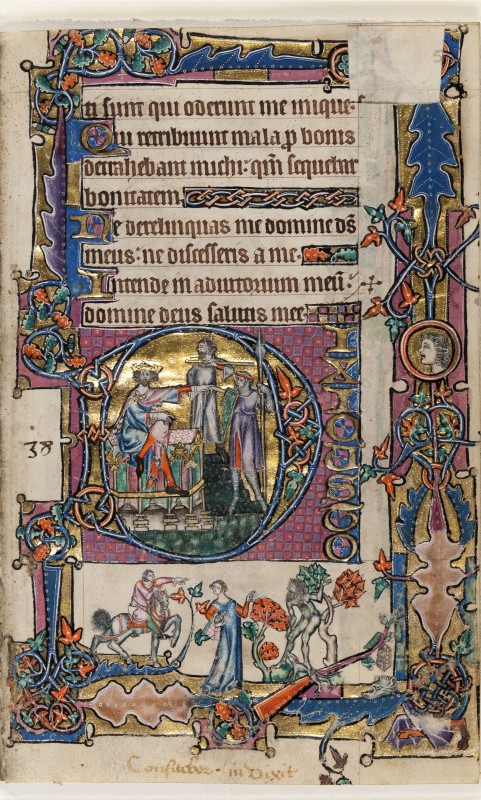 ti sunt qui oderunt me inique:
Qui retribuunt mala ꝑ bonis
detrahebant michi: qm̄ sequebar
bonitatem
Ne derelinquas me domine ds̄
meus: ne discesseris a me.
Intende in adiutorium meū:
domine deus salutis mee
DIXI
38
Confitebor · in Dixit